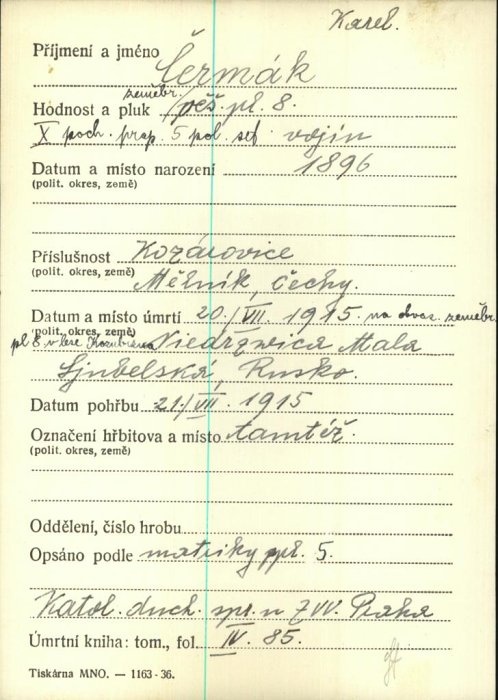 Karel.
Příjmení a jméno Čermák
zeměbr.
Hodnost a pluk pěš. pl. 8.
X poch. prap. 5 pol. set vojín
Datum a místo narození 1896
(polit. okres, země)
Příslušnost Kozárovice
(polit. okres, země) Mělník, Čechy.
Datum a místo úmrtí 20./VII. 1915 na obvaz. zeměbr.
(polit. okres, země)
pl 8 v lese Niedrzwica Mala
Ljubelská, Rusko.
Datum pohřbu 21./VII. 1915
Označení hřbitova a místo tamtéž.
(polit. okres, země)
Oddělení, číslo hrobu
Opsáno podle matriky ppl. 5.
Katol. duch. spr. u ZVV. Praha
Úmrtní kniha: tom., fol. IV. 85.
Tiskárna MNO. — 1163-36.